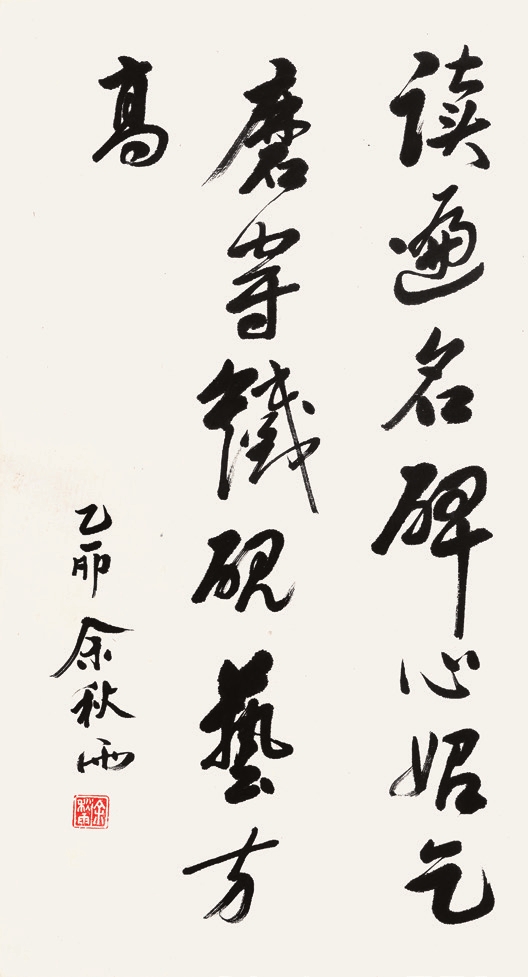 读遍名碑心始乞
磨穿鐵硯藝方
高
乙卯 余秋雨
余秋雨